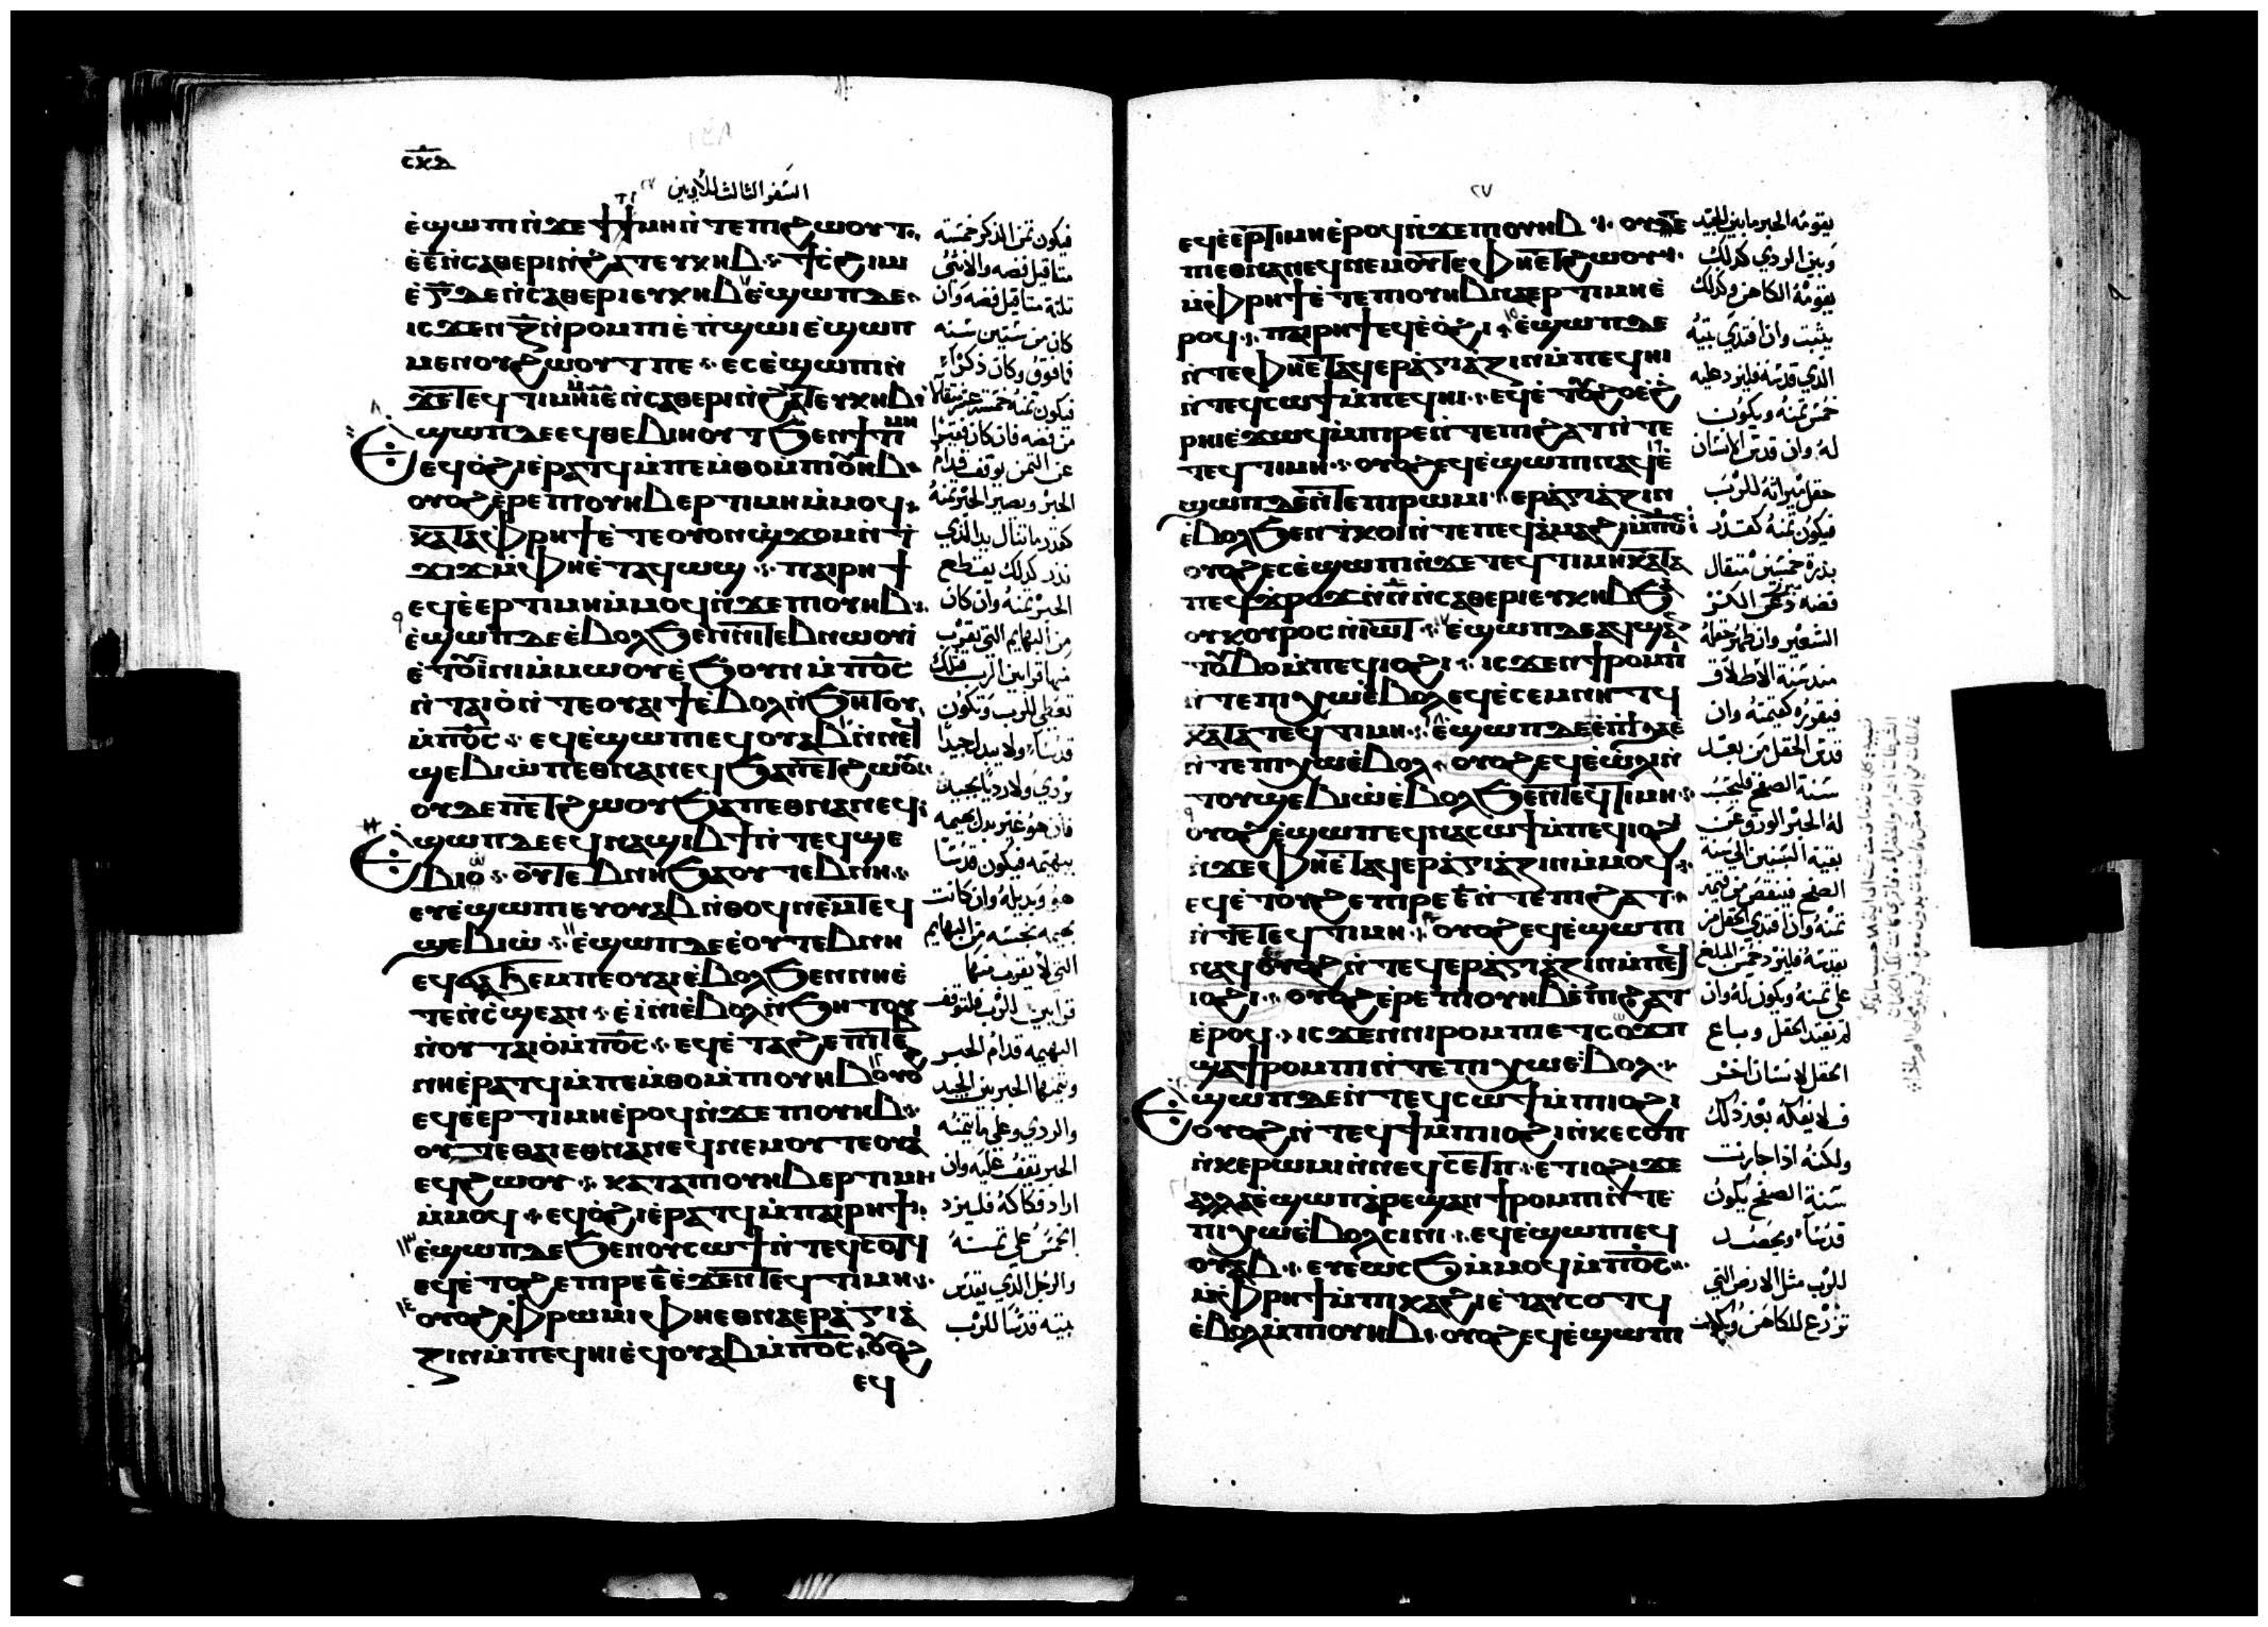 ⲥⲕⲇ
السفر الثالث للاويين
ⲉ̀ϣⲱⲡⲓ ⲛ̀ϫⲉ ϯⲧⲓⲙⲏ ⲛ̀ⲧⲉ ⲡⲓϩⲱⲟⲩⲧ
ⲉ̀ⲉ̅ ⲛ̀ⲥⲁⲑⲉⲣⲓ ⲛ̀ϩⲁⲧ ⲉⲩⲕⲏⲃ ϯⲥ̀ϩⲓⲙⲓ
ⲇⲉ ⲛ̀ⲥⲁⲑⲉⲣⲓ ⲉⲩⲕⲏⲃ ⲉ̀ϣⲱⲡ ⲇⲉ
ⲓⲥϫⲉⲛ ⲝ̅ ⲛ̀ⲣⲟⲙⲡⲓ ⲉ̀ⲡ̀ϣⲱⲓ ⲉ̀ϣⲱⲡ
ⲙⲉⲛ ⲟⲩϩⲱⲟⲩⲧ ⲡⲉ ⲉⲥⲉ̀ϣⲱⲡⲓ ⲛ̀
ϫⲉ ⲧⲉϥⲧⲓⲙⲏ ⲓ̅ⲉ̅ ⲛ̀ⲥⲁⲑⲉⲣⲓ ⲛ̀ϩⲁⲧ ⲉⲩⲕⲏⲃ
Ⲉ̀ϣⲱⲡ ⲇⲉ ⲉϥⲑⲉⲃⲓⲏⲟⲩⲧ ϧⲉⲛ ϯⲧⲓⲙⲏ
ⲉϥⲟ̀ϩⲓ ⲉ̀ⲣⲁⲧϥ ⲙ̀ⲡⲉⲙ̀ⲑⲟ ⲙ̀ⲡⲓⲟⲩⲏⲃ
ⲟⲩⲟϩ ⲉ̀ⲣⲉ ⲡⲓⲟⲩⲏⲃ ⲉⲣⲧⲓⲙⲏ ⲙ̀ⲙⲟϥ
ⲕⲁⲧⲁ ⲫ̀ⲣⲏϯ ⲉ̀ⲧⲉ ⲟⲩⲟⲛ ϣϫⲟⲙ ⲛ̀ⲧ
ϫⲓϫ ⲙ̀ⲫⲏ ⲉ̀ⲧⲁϥⲱϣ ⲡⲁⲓⲣⲏϯ
ⲉϥⲉ̀ⲉⲣⲧⲓⲙⲏ ⲙ̀ⲙⲟϥ ⲛ̀ϫⲉ ⲡⲓⲟⲩⲏⲃ
ⲉ̀ϣⲱⲡ ⲇⲉ ⲉ̀ⲃⲟⲗ ϧⲉⲛ ⲛⲓⲧⲉⲃⲛⲱⲟⲩⲓ̀
ⲉ̀ⲧⲟⲩⲓⲛⲓ ⲙ̀ⲙⲱⲟⲩ ⲉ̀ϧⲟⲩⲛ ⲙ̀ⲡⲟ̅ⲥ̅
ⲛ̀ⲧⲁⲓⲟ̀ ⲛ̀ⲧⲉ ⲟⲩⲁⲓ ϯ ⲉ̀ⲃⲟⲗ ⲛ̀ϧⲏⲧⲟⲩ
ⲙ̀ⲡⲟ̅ⲥ̅ ⲉϥⲉ̀ϣⲱⲡⲓ ⲉϥⲟⲩⲁⲃ ⲛ̀ⲛⲉϥ
ϣⲉⲃⲓⲱ ⲙ̀ⲡⲉⲑⲛⲁⲛⲉϥ ϧⲁ ⲡⲉⲧϩⲱⲟⲩ
ⲟⲩⲇⲉ ⲡⲉⲧϩⲱⲟⲩ ϧⲁ ⲡⲉⲑⲛⲁⲛⲉϥ
Ⲉ̀ϣⲱⲡ ⲇⲉ ⲉϥⲛⲁϣⲓⲃϯ ⲛ̀ⲧⲉϥϣⲉ
ⲃⲓⲱ ⲟⲩⲧⲉⲃⲛⲏ ϧⲁ ⲟⲩⲧⲉⲃⲛⲏ
ⲉⲩⲉ̀ϣⲱⲡⲓ ⲉⲩⲟⲩⲁⲃ ⲛ̀ⲑⲟϥ ⲛⲉⲙ ⲧⲉϥ
ϣⲉⲃⲓⲱ ⲉ̀ϣⲱⲡ ⲇⲉ ⲉ̀ⲟⲩⲧⲉⲃⲛⲏ
ⲉϥϭⲁϧⲉⲙ ⲡⲉ ⲟⲩⲁⲓ ⲉ̀ⲃⲟⲗ ϧⲉⲛ ⲛⲏ ⲉ̀
ⲧⲉⲛⲥ̀ϣⲉ ⲁⲛ ⲉ̀ⲓⲛⲓ ⲉ̀ⲃⲟⲗ ⲛ̀ϧⲏⲧⲟⲩ
ⲛ̀ⲟⲩⲧⲁⲓⲟ ⲙ̀ⲡⲟ̅ⲥ̅ ⲉϥⲉ̀ⲧⲁϩⲉ ⲡⲓⲧⲉⲃ
ⲛⲏ ⲉ̀ⲣⲁⲧϥ ⲙ̀ⲡⲉⲙ̀ⲑⲟ ⲙ̀ⲡⲓⲟⲩⲏⲃ ⲟⲩⲟϩ
ⲉϥⲉ̀ⲉⲣⲧⲓⲙⲏ ⲉ̀ⲣⲟϥ ⲛ̀ϫⲉ ⲡⲓⲟⲩⲏⲃ
ⲟⲩⲧⲉ ⲑⲁⲓ ⲉⲑⲛⲁⲛⲉϥ ⲛⲉⲙ ⲟⲩⲧⲉ ⲟⲩⲁⲓ
ⲉϥϩⲱⲟⲩ ⲕⲁⲧⲁ ⲡⲓⲟⲩⲏⲃ ⲉⲣⲧⲓⲙⲏ
ⲙ̀ⲙⲟϥ ⲉϥⲟ̀ϩⲓ ⲉ̀ⲣⲁⲧϥ ⲙ̀ⲡⲁⲓⲣⲏϯ
ⲉ̀ϣⲱⲡ ⲇⲉ ϧⲉⲛ ⲟⲩⲥⲱϯ ⲛ̀ⲧⲉϥⲥⲟⲧϥ
ⲉϥⲉ̀ⲧⲟϩ ⲉ ⲡⲓⲣⲉ ⲉ̅ ⲉ̀ϫⲉⲛ ⲧⲉϥⲧⲓⲙⲏ
ⲟⲩⲟϩ ⲫ̀ⲣⲱⲙⲓ ⲫⲏ ⲉⲑⲛⲁⲉⲣⲁ̀ⲅⲓⲁ̀
ⲍⲓⲛ ⲙ̀ⲡⲉϥⲏⲓ ⲉϥⲟⲩⲁⲃ ⲙ̀ⲡⲟ̅ⲥ̅ ⲟⲩⲟϩ
ⲉϥ
فيكون ثمن الذكر خمسة
مثاقيل فضه والانثى
ثلثة مثاقيل فضه وان
كان من ستين سنه
فما فوق وكان ذكراً
فيكون ثمنه خمسة عشر مثقالاً
من فضه فان كان فقيراً
عن الثمن يوقف قدام
الحبر ويصير الحبر ثمنه
كقدر ما تنال يد الذي
نذر كذلك يقطع
الحبر ثمنه وان كان
من البهايم التي يقرب
منها قرابين للرب فتلك
تعطى للرب وتكون
قدساً ولا يبدل جيداً
بردي ولا رديا بجيد
فان هو غير بدل بهيمه
ببهيمه فيكون قدسًا
هو وبديله وان كانت
بهيمه نجسه من البهايم
التي لا يقرب منها
قرابين للرب فلتوقف
البهيمه قدام الحبر
ويثمنها الحبر بين الجيد
والردي وعلى ما يثمنه
الحبر يقف عليه وان
اراد فكاكه فليزد
الخمس على ثمنه
والرجل الذي يقدس
بيته قدسًا للرب
٢٧
ⲉϥⲉ̀ⲉⲣⲧⲓⲙⲏ ⲉ̀ⲣⲟϥ ⲛ̀ϫⲉ ⲡⲓⲟⲩⲏⲃ ⲟⲩⲧⲉ
ⲡⲉⲑⲛⲁⲛⲉϥ ⲛⲉⲙ ⲟⲩⲧⲉ ⲫⲏ ⲉⲧϩⲱⲟⲩ
ⲙ̀ⲫ̀ⲣⲏϯ ⲉ̀ⲧⲉ ⲡⲓⲟⲩⲏⲃ ⲛⲁⲉⲣⲧⲓⲙⲏ ⲉ̀
ⲣⲟϥ ⲡⲁⲓⲣⲏϯ ⲉϥⲉ̀ⲟ̀ϩⲓ ⲉ̀ϣⲱⲡ ⲇⲉ
ⲛ̀ⲧⲉ ⲫⲏ ⲉⲧⲁϥⲉⲣⲁ̀ⲅⲓⲁ̀ⲍⲓⲛ ⲙ̀ⲡⲉϥⲏⲓ
ⲛ̀ⲧⲉϥⲥⲱϯ ⲙ̀ⲡⲉϥⲏⲓ ⲉϥⲉ̀ⲧⲟⲩϩⲟ ⲉ̀ϩ
ⲣⲏⲓ ⲉ̀ϫⲱϥ ⲙ̀ⲡⲓⲣⲉ ⲛ̀ⲧⲉ ⲡⲓϩⲁⲧ ⲛ̀ⲧⲉ
ⲧⲉϥⲧⲓⲙⲏ ⲟⲩⲟϩ ⲉϥⲉ̀ϣⲱⲡⲓ ⲛⲁϥ ⲉ̀
ϣⲱⲡ ⲇⲉ ⲛ̀ⲧⲉ ⲡⲓⲣⲱⲙⲓ ⲉⲣⲁ̀ⲅⲓⲁ̀ⲍⲓⲛ
ⲉ̀ⲃⲟⲗ ϧⲉⲛ ⲧ̀ⲕⲟⲓ ⲛ̀ⲧⲉ ⲡⲉϥⲁ̀ⲙⲁϩⲓ ⲙ̀ⲡⲟ̅ⲥ̅
ⲟⲩⲟϩ ⲉⲥⲉ̀ϣⲱⲡⲓ ⲛ̀ϫⲉ ⲧⲉϥⲧⲓⲙⲏ ⲕⲁⲧⲁ
ⲡⲉϥϫ̀ⲣⲟϫ ⲛ̀ⲛ̅ ⲛ̀ⲥⲁⲑⲉⲣⲓ ⲉⲩⲕⲏⲃ ϧⲁ
ⲟⲩⲕⲟⲩⲣⲟⲥ ⲛ̀ⲓⲱⲧ ⲉ̀ϣⲱⲡ ⲇⲉ ⲁϥϣⲁⲛ
ⲧⲟⲩⲃⲟ ⲙ̀ⲡⲉϥⲓⲟϩⲓ ⲓⲥϫⲉⲛ ϯⲣⲟⲙⲡⲓ
ⲛ̀ⲧⲉ ⲡⲓⲭⲱ ⲉ̀ⲃⲟⲗ ⲉϥⲉ̀ⲥⲉⲙⲛⲏⲧϥ
ⲕⲁⲧⲁ ⲧⲉϥⲧⲓⲙⲏ ⲉ̀ϣⲱⲡ ⲇⲉ ⲉ̀ⲡ̀ϧⲁⲉ̀
ⲛ̀ⲧⲉ ⲡⲓⲭⲱ ⲉ̀ⲃⲟⲗ ⲟⲩⲟϩ ⲉϥⲉ̀ⲱⲗⲓ ⲛ̀
ⲧⲟⲩϣⲉⲃⲓⲱ ⲉ̀ⲃⲟⲗ ϧⲉⲛ ⲧⲉϥⲧⲓⲙⲏ
ⲟⲩⲟϩ ⲉ̀ϣⲱⲡ ⲉϥⲛⲁⲥⲱϯ ⲙ̀ⲡⲉϥⲓⲟϩⲓ
ⲛ̀ϫⲉ ⲫⲏ ⲉⲧⲁϥⲉⲣⲁ̀ⲅⲓⲁ̀ⲍⲓⲛ ⲙ̀ⲙⲟϥ
ⲉϥⲉ̀ⲧⲟⲩϩⲉ ⲡⲓⲣⲉ ⲉ̅ ⲛ̀ⲧⲉ ⲡⲓϩⲁⲧ
ⲛ̀ⲧⲉ ⲧⲉϥⲧⲓⲙⲏ ⲟⲩⲟϩ ⲉϥⲉ̀ϣⲱⲡⲓ
ⲛⲁϥ ⲟⲩⲟϩ ⲛ̀ⲧⲉϥⲉⲣⲁ̀ⲅⲓⲁ̀ⲍⲓⲛ ⲙ̀ⲡⲉϥ
ⲓⲟϩⲓ ⲟⲩⲟϩ ⲉ̀ⲣⲉ ⲡⲓⲟⲩⲏⲃ ⲉ̀ⲡ ⲡⲓϩⲁⲧ
ⲉ̀ⲣⲟϥ ⲓⲥϫⲉⲛ ⲛⲓⲣⲟⲙⲡⲓ ⲉⲧⲥⲟϫⲡ
ϣⲁ ϯⲣⲟⲙⲡⲓ ⲛ̀ⲧⲉ ⲡⲓⲭⲱ ⲉ̀ⲃⲟⲗ
Ⲉ̀ϣⲱⲡ ⲇⲉ ⲛ̀ⲧⲉϥⲥⲱϯ ⲙ̀ⲡⲓⲟϩⲓ
ⲟⲩⲟϩ ⲛ̀ⲧⲉϥϯ ⲙ̀ⲡⲓⲟϩⲓ ⲛ̀ⲕⲉⲥⲟⲡ
ⲛ̀ⲕⲉⲣⲱⲙⲓ ⲛ̀ⲛⲉϥⲥⲉⲧ ⲡⲓ ⲉⲧⲓⲟϩⲓ ϫⲉ
ⲁⲗⲗⲁ ⲉ̀ϣⲱⲡ ⲁ̀ⲣⲉϣⲁⲛ ϯⲣⲟⲙⲡⲓ ⲛ̀ⲧⲉ
ⲡⲓⲭⲱ ⲉ̀ⲃⲟⲗ ⲥⲓⲛⲓ ⲉϥⲉ̀ϣⲱⲡⲓ ⲉϥ
ⲟⲩⲁⲃ ⲉⲩⲉ̀ⲱⲥϧ ⲙ̀ⲙⲟϥ ⲙ̀ⲡⲟ̅ⲥ̅
ⲙ̀ⲫ̀ⲣⲏϯ ⲙ̀ⲡⲓⲕⲁϩⲓ ⲉ̀ⲧⲁⲩⲥⲟⲧϥ
ⲉ̀ⲃⲟⲗ ⲙ̀ⲡⲓⲟⲩⲏⲃ ⲟⲩⲟϩ ⲉϥⲉ̀ϣⲱⲡⲓ
يقومه الحبر ما بين الجيد
وبين الردي كذلك
يقومه الكاهن وكذلك
يثبت وان افتدى بيته
الذي قدسه فليزد عليه
خمس ثمنه ويكون
له وان قدس الانسان
حقل ميراثه للرب
فيكون ثمنه كقدر
بذره خمسين مثقال
فضه عن الكر
الشعير وان طهر حقله
منذ سنة الاطلاق
فيقرره كقيمته وان
قدس الحقل من بعد
سنة الصفح فليحسب
له الحبر الورق عن
بقية السنين الى سنة
الصفح فينقص من قيمة
ثمنه وان افتدى الحقل من
يقدسه فليزد خمس المبلغ
على ثمنه ويكون له وان
لم يفتد الحقل وباع
الحقل لانسان اخر
فلا يفكه بعد ذلك
ولكنه اذا جازت
سنة الصفح يكون
قدساً ويحصد
للرب مثل الارض التي
تزرع للكاهن ويكون